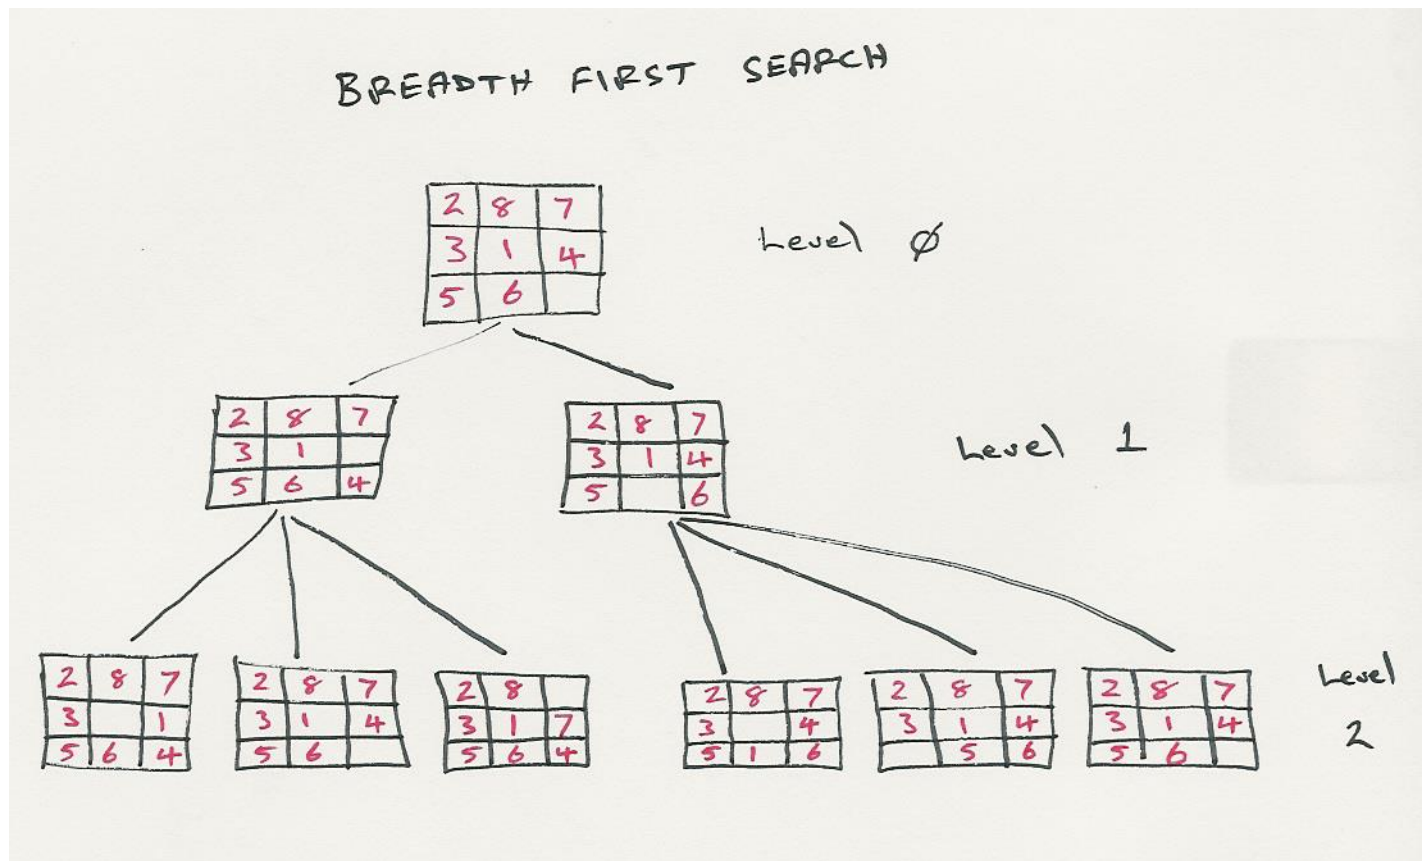 BREADTH FIRST SEARCH
2 8 7
3 1 4
5 6
Level 0
2 8 7
3 1
5 6 4
2 8 7
3 1 4
5 6
Level 1
2 8 7
3 1
5 6 4
2 8 7
3 1 4
5 6
2 8
3 1 7
5 6 4
2 8 7
3 4
5 1 6
2 8 7
3 1 4
5 6
2 8 7
3 1 4
5 6
Level
2